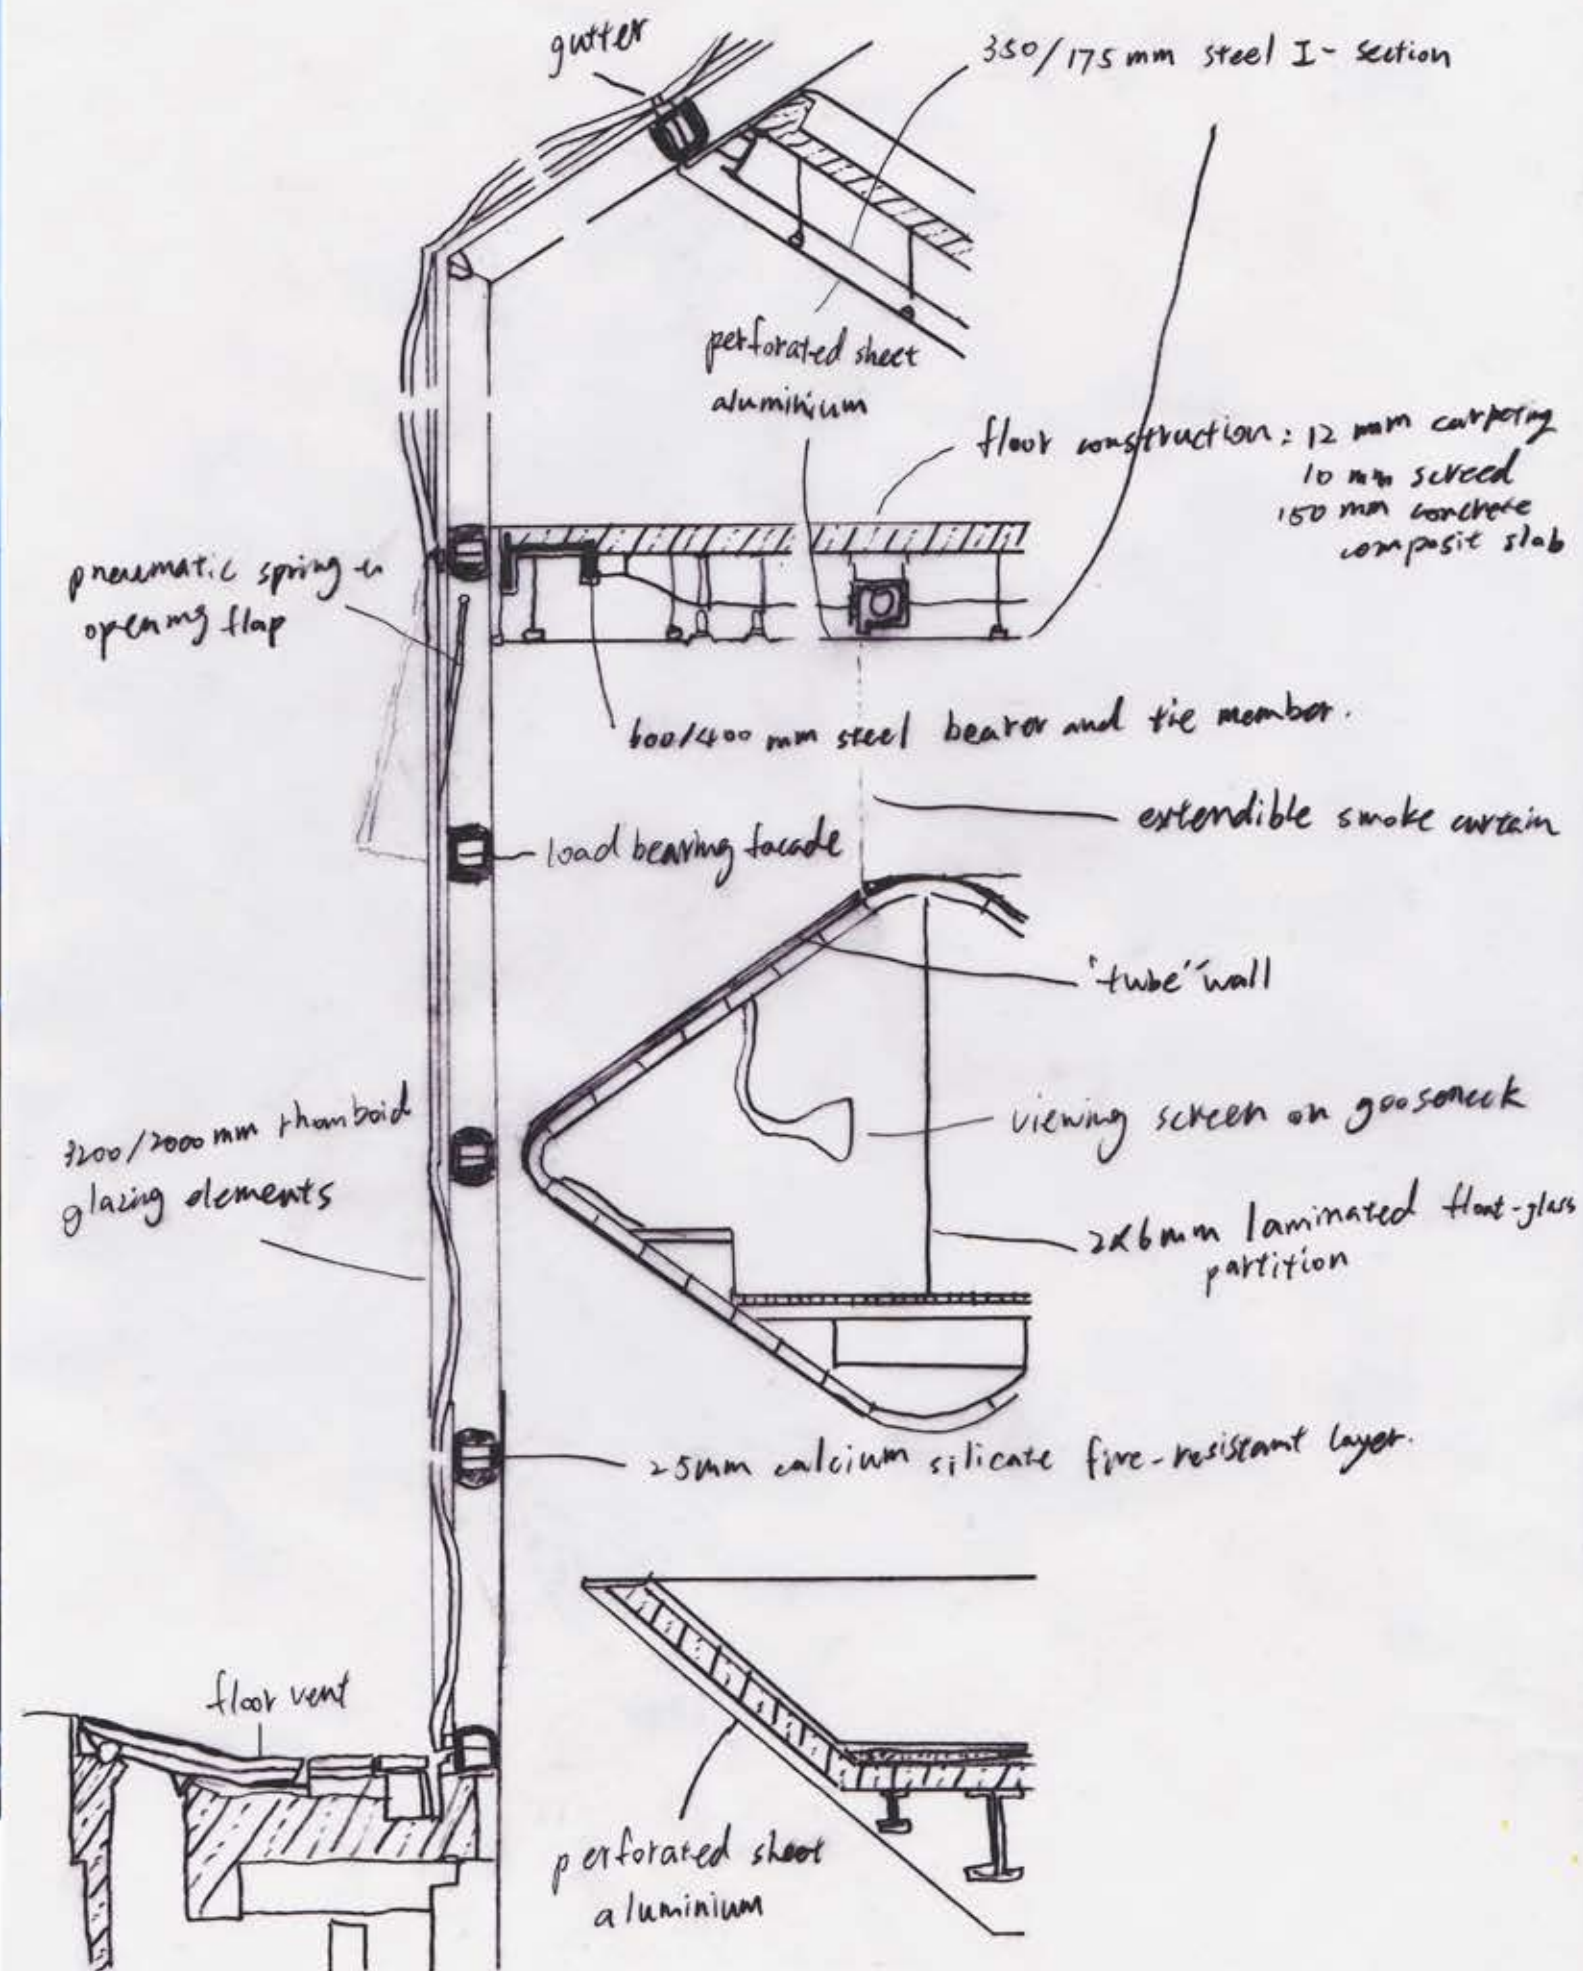 gutter
350/175 mm steel I-section
perforated sheet
aluminium
floor construction: 12 mm carpeting
10 mm screed
150 mm concrete
composit slab
pneumatic spring in
opening flap
600/400 mm steel bearer and tie member.
extendible smoke curtain
load bearing facade
"tube" wall
3200/2000 mm rhomboid
glazing elements
viewing screen on gooseneck
2x6mm laminated float-glass
partition
25mm calcium silicate fire-resistant layer.
floor vent
perforated sheet
aluminium